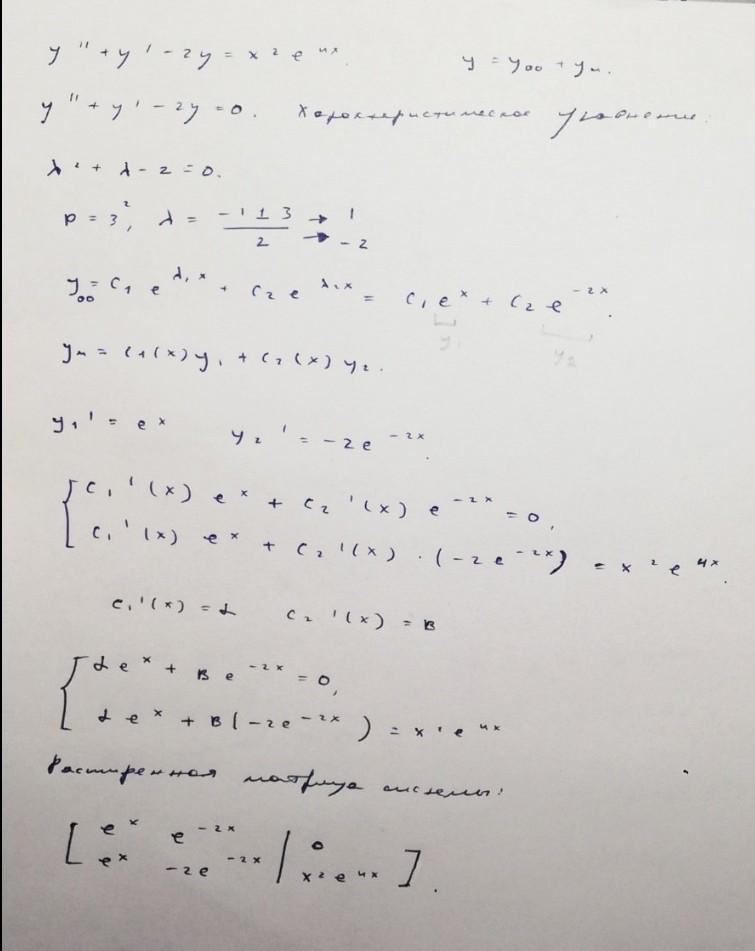 y'' + y' - 2y = x² e^{4x}. y = y₀₀ + yₙ.
y'' + y' - 2y = 0. Характеристическое уравнение:
λ² + λ - 2 = 0.
D = 3², λ = (-1 ± 3)/2 → 1 → -2
y₀₀ = C₁ e^{λ₁x} + C₂ e^{λ₂x} = C₁ e^x + C₂ e^{-2x}.
y₁ y₂
yₙ = C₁(x) y₁ + C₂(x) y₂.
y₁' = e^x y₂' = -2e^{-2x}.
{ C₁'(x) e^x + C₂'(x) e^{-2x} = 0,
C₁'(x) e^x + C₂'(x) · (-2e^{-2x}) = x² e^{4x}.
C₁'(x) = α C₂'(x) = B
{ α e^x + B e^{-2x} = 0,
α e^x + B(-2e^{-2x}) = x² e^{4x}
Расширенная матрица системы:
[ e^x e^{-2x} | 0
e^x -2e^{-2x} | x² e^{4x} ].